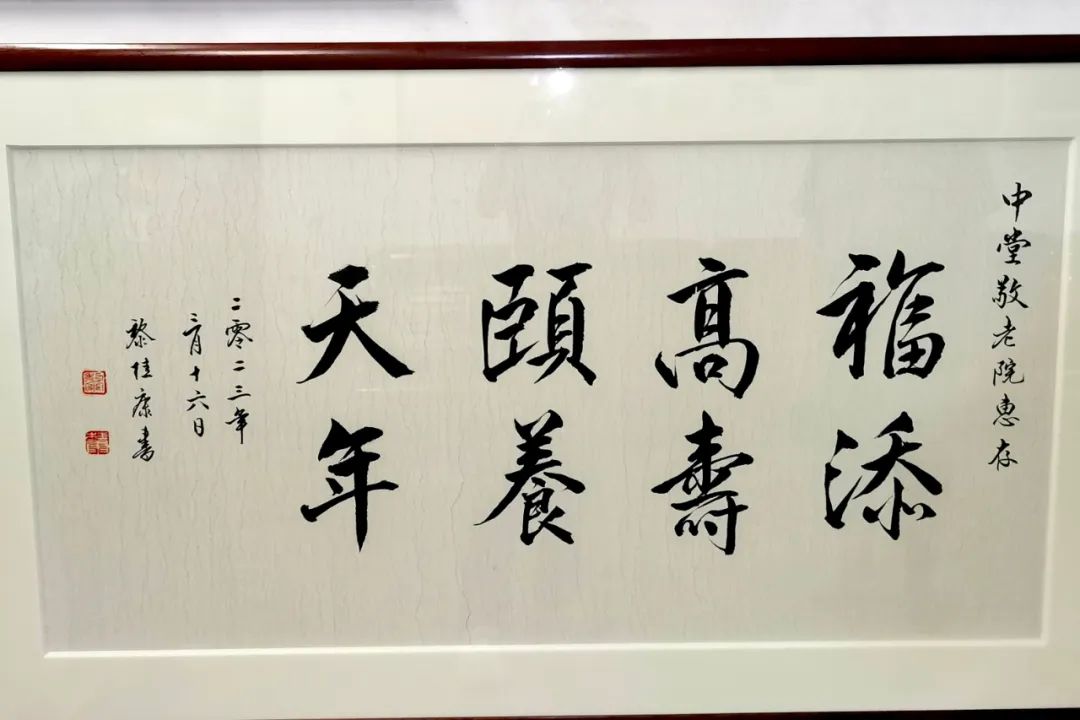 中堂敬老院惠存
福添
高壽
頤養
天年
二零二三年
二月十六日
黎佳康書